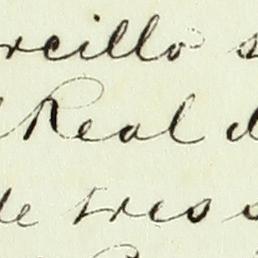 rcillo s
Real d
de tres s